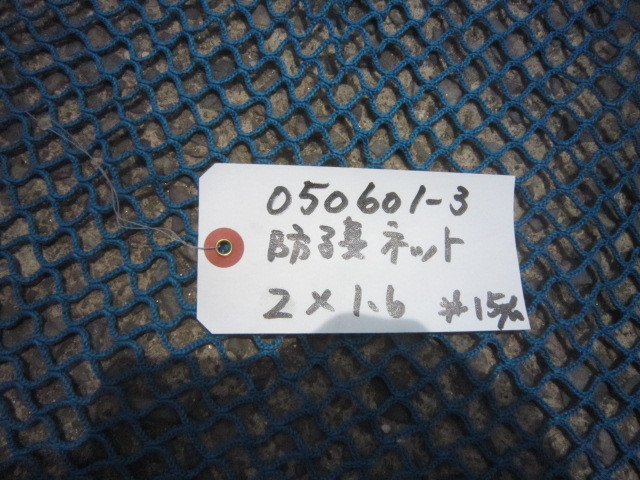 050601-3
防鳥ネット
2×1.6 ※15%